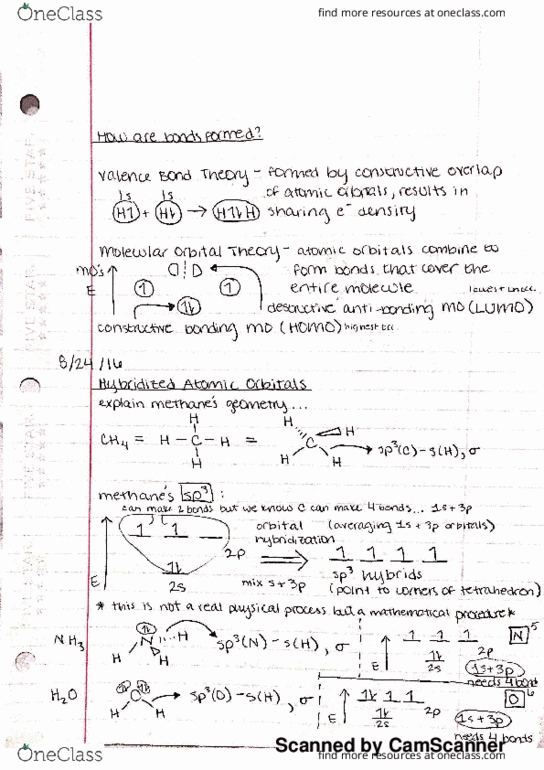 OneClass
find more resources at oneclass.com
How are bonds formed?
Valence Bond Theory - formed by constructive overlap
1s 1s of atomic orbitals, results in
H↿ + H⇂ → H↿⇂H sharing e⁻ density
Molecular Orbital Theory - atomic orbitals combine to
mo's form bonds that cover the
E ↿ ↿ entire molecule. lowest unocc.
↿⇂ destructive anti-bonding mo (LUMO)
constructive bonding mo (HOMO) highest occ.
8/24/16
Hybridized Atomic Orbitals
explain methane's geometry...
H H
CH₄ = H - C - H = C H → sp³(C) - s(H), σ
H H H
methane's sp³ :
can make 2 bonds but we know C can make 4 bonds... 1s + 3p
1 1 orbital (averaging 1s + 3p orbitals)
2p hybridization 1 1 1 1
E 1⇂ 2s mix s + 3p ⇒ sp³ hybrids
(point to corners of tetrahedron)
* this is not a real physical process but a mathematical procedure *
NH₃ H N H H → sp³(N) - s(H), σ E 1 1 1 2p N 5
1⇂ 2s 1s + 3p
needs 4 bond
H₂O H O H → sp³(O) - s(H), σ E 1⇂ 1 1 2p O 6
1⇂ 2s 1s + 3p
needs 4 bonds
Scanned by CamScanner
OneClass
find more resources at oneclass.com